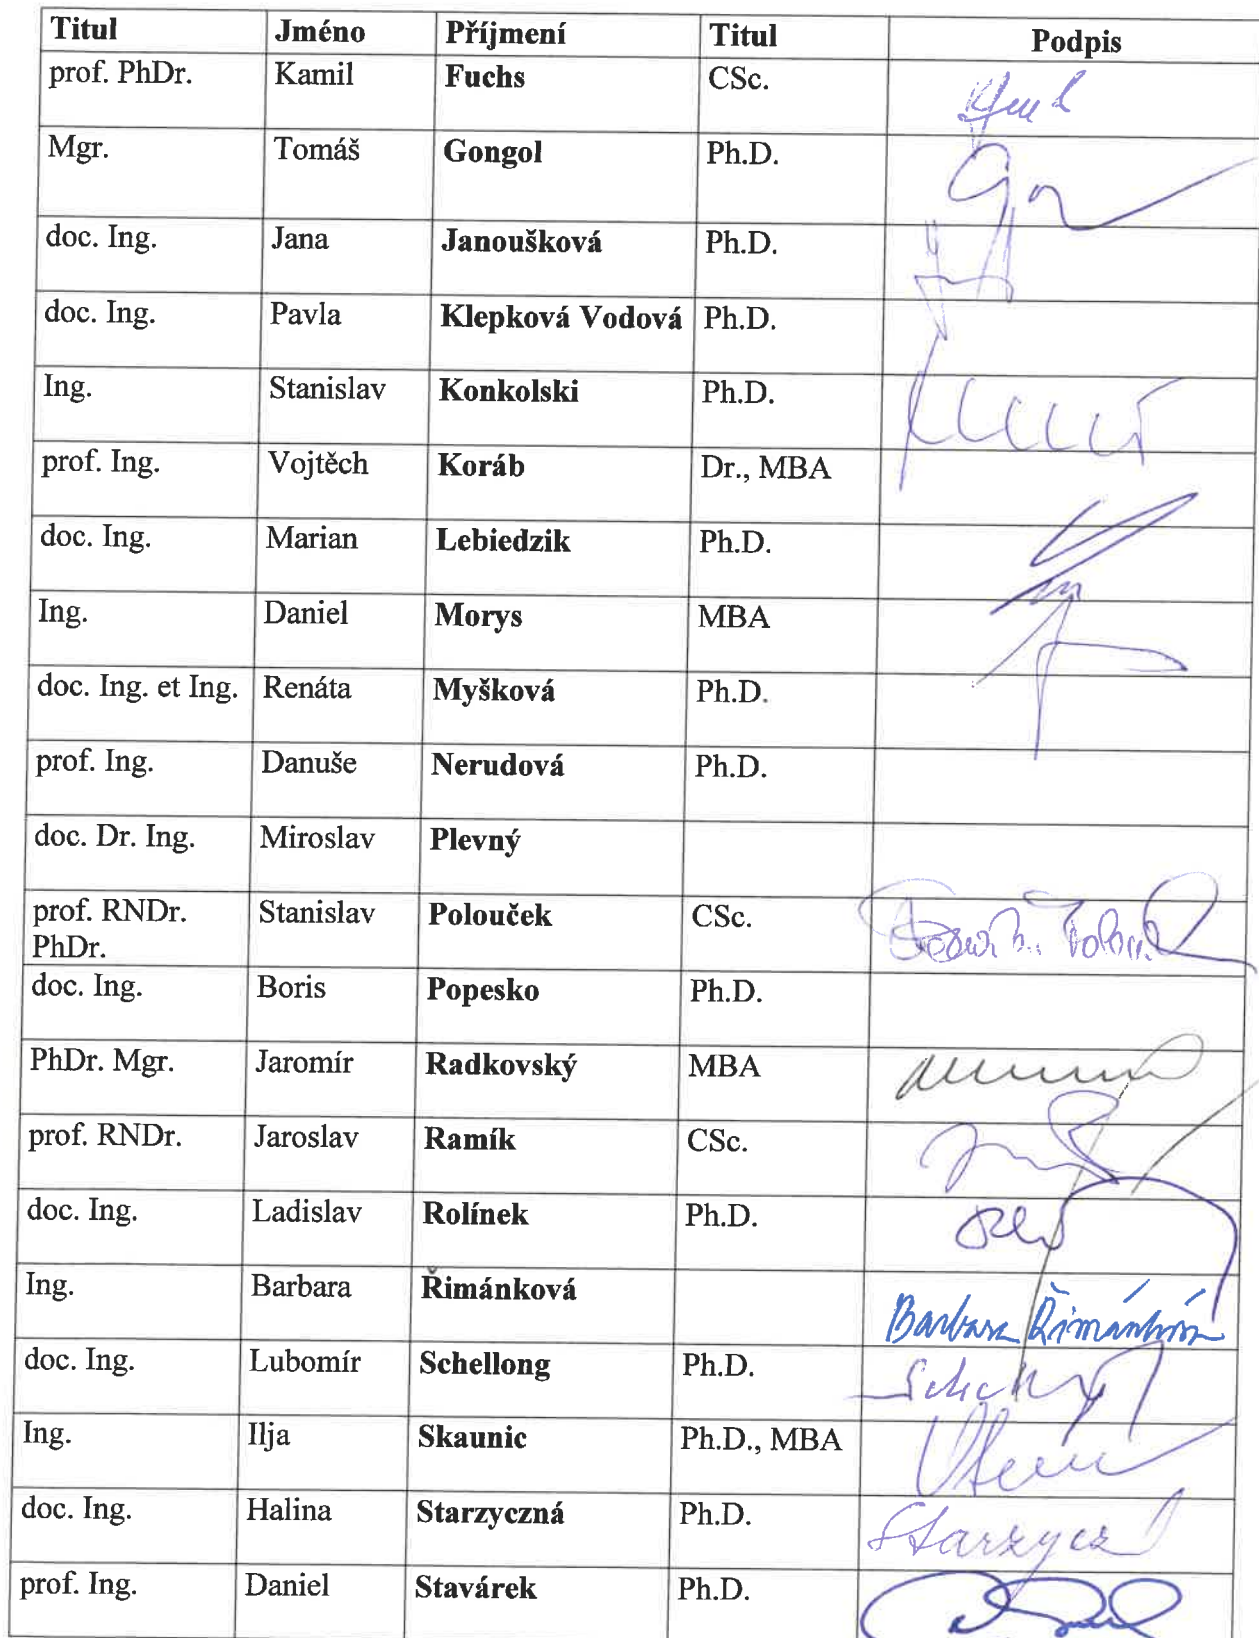 Titul Jméno Příjmení Titul Podpis
prof. PhDr. Kamil Fuchs CSc.
Mgr. Tomáš Gongol Ph.D.
doc. Ing. Jana Janoušková Ph.D.
doc. Ing. Pavla Klepková Vodová Ph.D.
Ing. Stanislav Konkolski Ph.D.
prof. Ing. Vojtěch Koráb Dr., MBA
doc. Ing. Marian Lebiedzik Ph.D.
Ing. Daniel Morys MBA
doc. Ing. et Ing. Renáta Myšková Ph.D.
prof. Ing. Danuše Nerudová Ph.D.
doc. Dr. Ing. Miroslav Plevný
prof. RNDr. Stanislav Polouček CSc.
PhDr.
doc. Ing. Boris Popesko Ph.D.
PhDr. Mgr. Jaromír Radkovský MBA
prof. RNDr. Jaroslav Ramík CSc.
doc. Ing. Ladislav Rolínek Ph.D.
Ing. Barbara Řimánková Barbara Řimánková
doc. Ing. Lubomír Schellong Ph.D.
Ing. Ilja Skaunic Ph.D., MBA
doc. Ing. Halina Starzyczná Ph.D.
prof. Ing. Daniel Stavárek Ph.D.